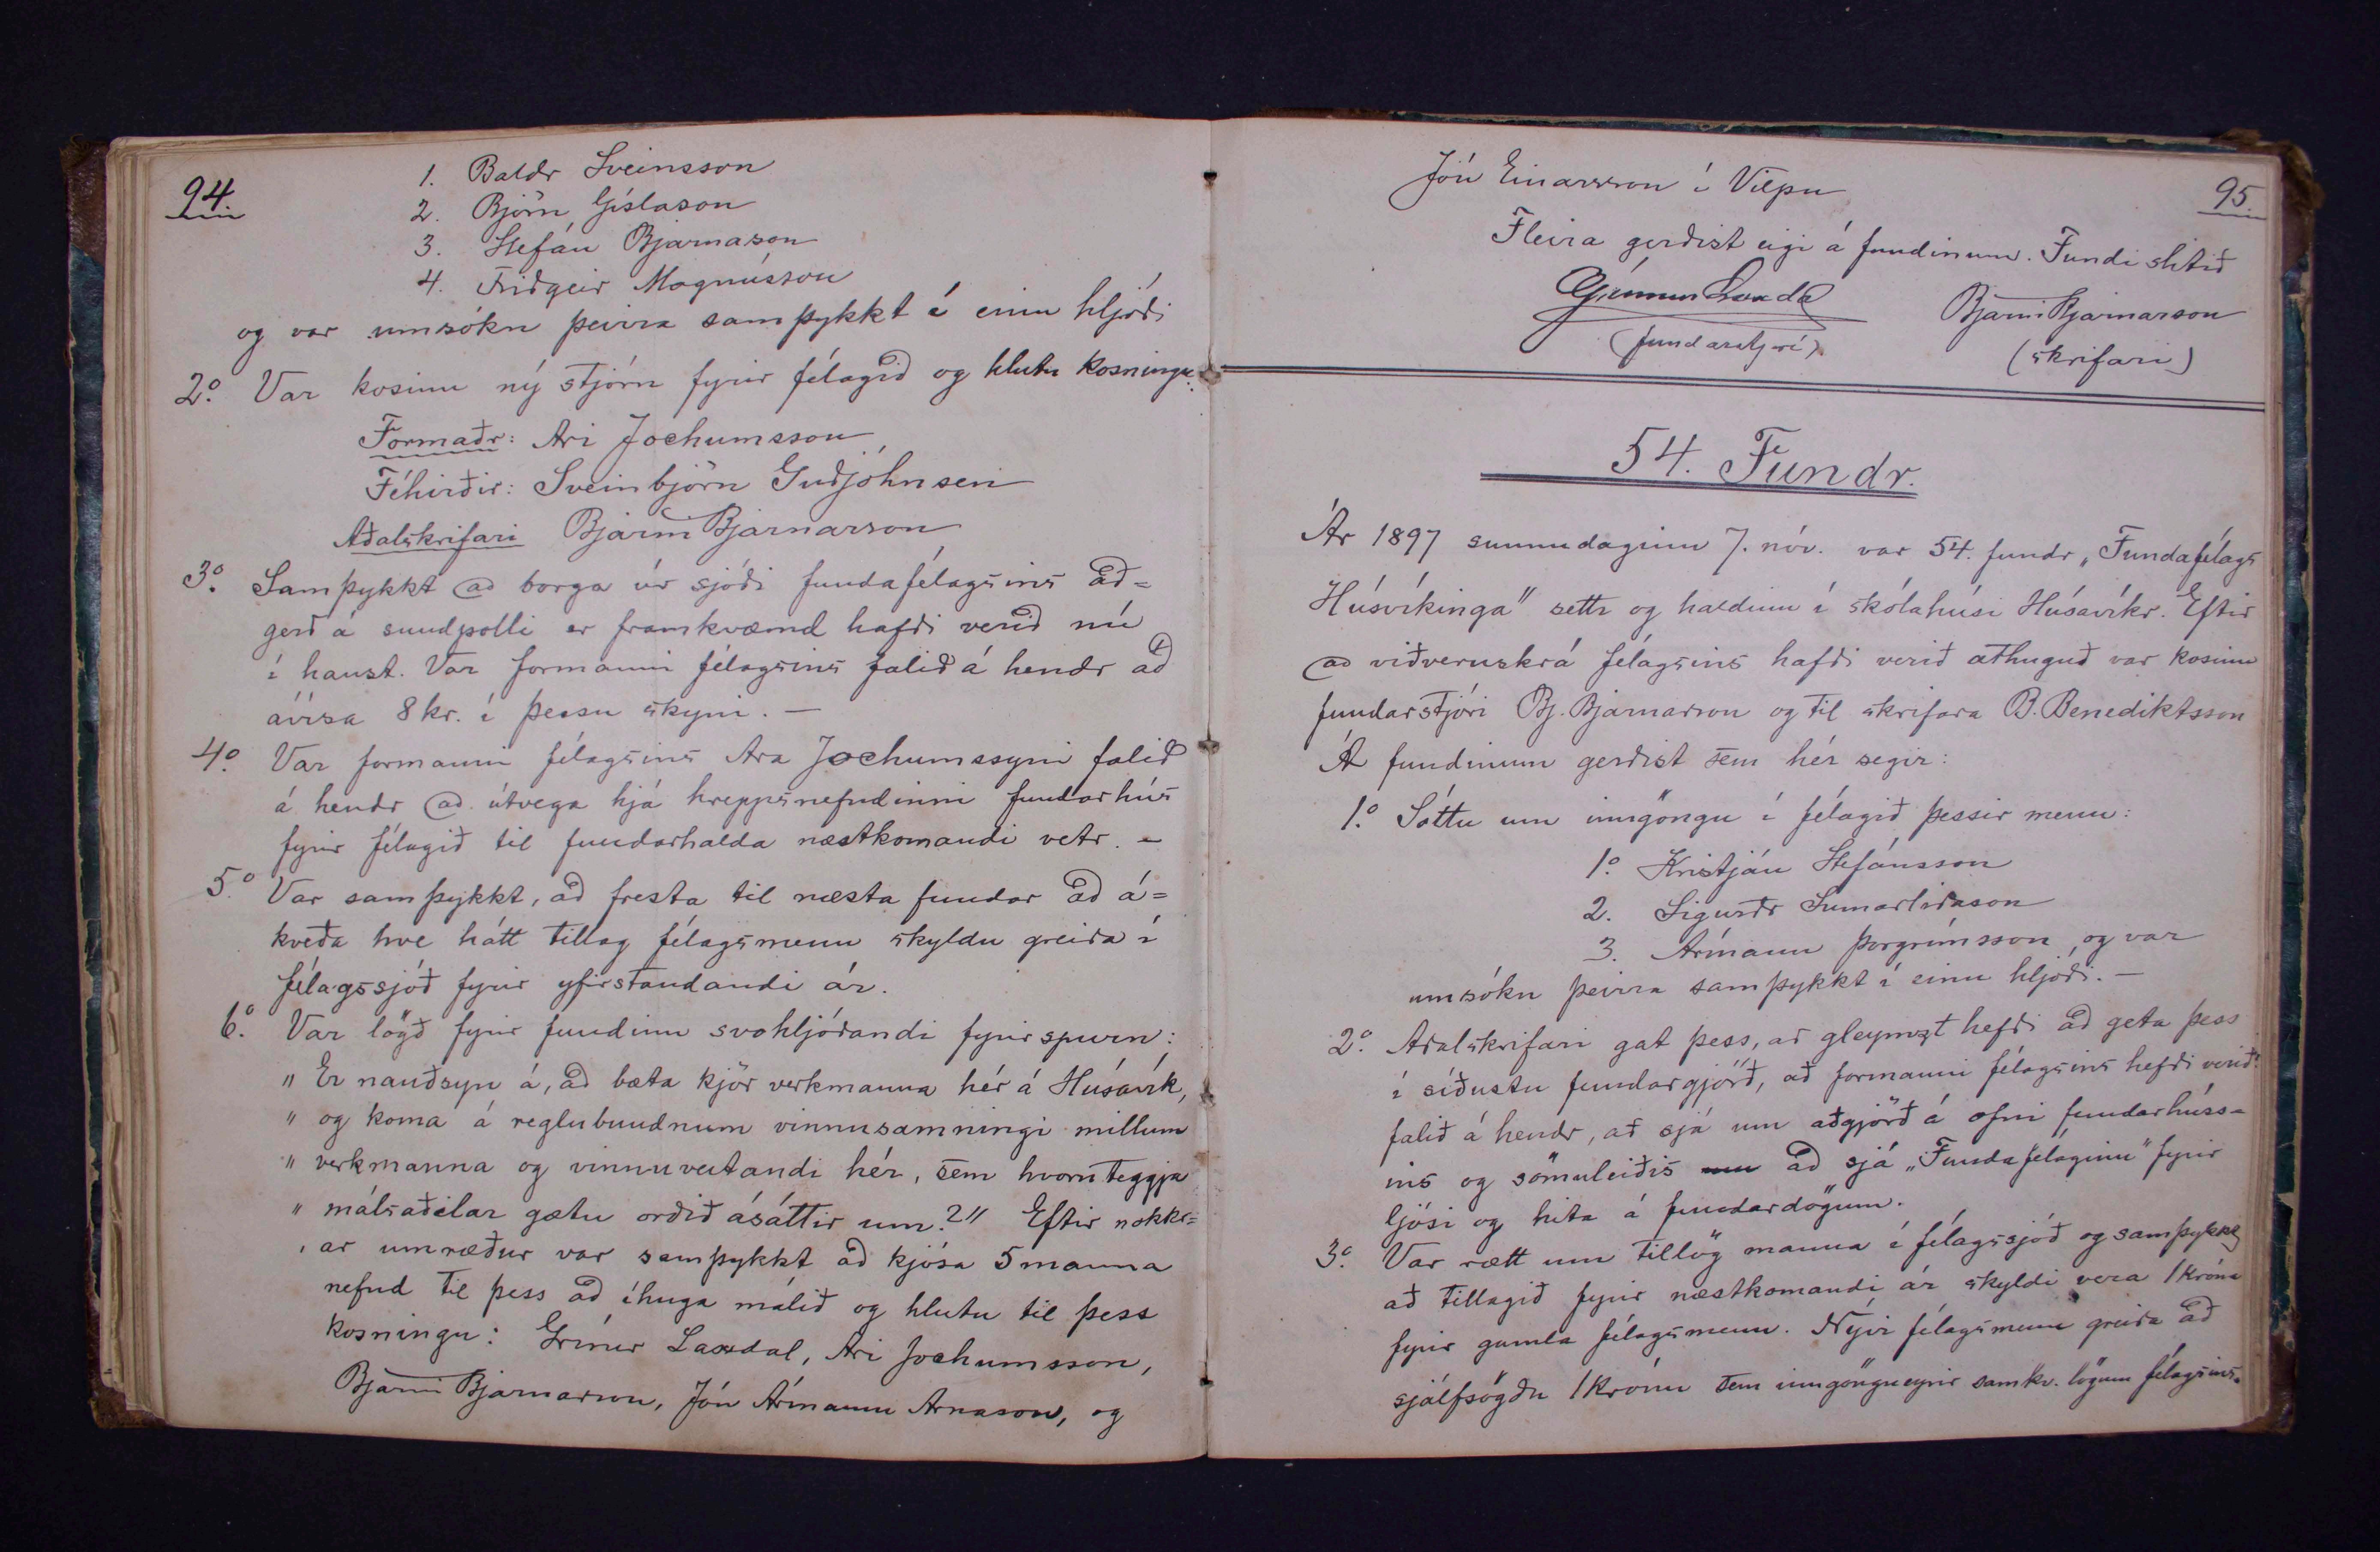 94.
1. Baldr Sveinsson
2. Björn Gíslason
3. Stefán Bjarnason
4. Friðgeir Magnússon
og var umsókn þeirra samþykkt í einu hljóði
2.o Var kosinn ný stjórn fyrir félagið og hlutu kosningu:
Formaðr: Ari Jochumsson
Féhirðir: Sveinbjörn Guðjohnsen
Aðalskrifari Bjarni Bjarnarson
3.o Samþykkt að borga úr sjóði fundafélagsins að=
gerð á sundpolli er framkvæmd hafði verið nú
í haust. Var formanni félagsins falið á hendr að
ávísa 8 kr. í þessu skyni. —
4.o Var formanni félagsins Ara Jochumssyni falið
á hendr að útvega hjá hreppsnefndinni fundarhús
fyrir félagið til fundarhalda næstkomandi vetr. –
5.o Var samþykkt, að fresta til næsta fundar að á=
kveða hve hátt tillag félagsmenn skyldu greiða í
félagssjóð fyrir yfirstandandi ár.
6.o Var lögð fyrir fundinn svohljóðandi fyrirspurn:
" Er nauðsyn á, að bæta kjör verkmanna hér á Húsavík,
" og koma á reglubundnum vinnusamningi millum
" verkmanna og vinnuveitandi hér, sem hvorutveggja
" málsaðilar gætu orðið ásáttir um?" Eftir nokkr=
ar umræður var samþykkt að kjósa 5 manna
nefnd til þess að íhuga málið og hlutu til þess
kosningu: Grímur Laxdal, Ari Jochumsson,
Bjarni Bjarnarson, Jón Ármann Árnason, og
95.
Jón Einarsson í Vilpu
Fleira gerðist eigi á fundinum. Fundi slitið
Grímur Laxdal
Bjarni Bjarnarson
(fundarstjóri)
(skrifari)
54. Fundr.
Ár 1897 sunnudaginn 7. nóv. var 54. fundr „Fundafélags
Húsvíkinga" settr og haldinn í skólahúsi Húsavíkr. Eftir
að viðveruskrá félagsins hafði verið athuguð var kosinn
fundarstjóri Bj. Bjarnarson og til skrifara B. Benediktsson
Á fundinum gerðist sem hér segir:
1.o Sóttu um inngöngu í félagið þessir menn:
1.o Kristján Stefánsson
2. Sigurðr Sumarliðason
3. Ármann Þorgrímsson, og var
umsókn þeirra samþykkt í einu hljóði. —
2.o Aðalskrifari gat þess, að gleymzt hefði að geta þess
í síðustu fundargjörð, að formanni félagsins hefði verið
falið á hendr, að sjá um aðgjörð á ofni fundarhúss=
ins og sömuleiðis um að sjá „Fundafélaginu" fyrir
ljósi og hita á fundardögum.
3.o Var rætt um tillög manna í félagssjóð og samþykkt
að tillagið fyrir næstkomandi ár skyldi vera 1 króna
fyrir gamla félagsmenn. Nýir félagsmenn greiða að
sjálfsögðu 1 krónu sem inngöngueyrir samkv. lögum félagsins.